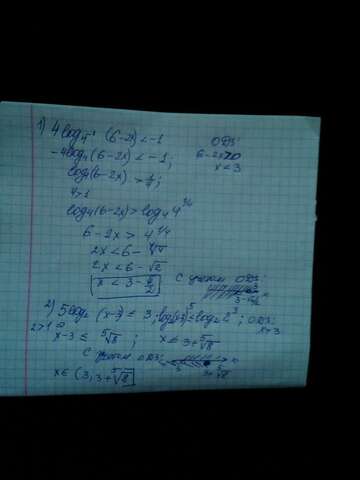 1) 4 log₄⁻¹ (6-2x) < -1
ОДЗ:
-4 log₄ (6-2x) < -1;
6-2x>0
x < 3
log₄(6-2x) > 1/4;
4>1
log₄(6-2x) > log₄ 4^1/4
6-2x > 4^1/4
2x < 6 - ⁴√4
2x < 6 - √2
x < 3 - √2/2
С учетом ОДЗ:
2) 5 log₂ (x-3) ≤ 3; log₂(x-3)⁵ ≤ log₂ 2³; ОДЗ:
x>3
2>1
x-3 ≤ ⁵√8 ; x ≤ 3+⁵√8
С учетом ОДЗ:
3+⁵√8
x ∈ (3; 3+⁵√8]